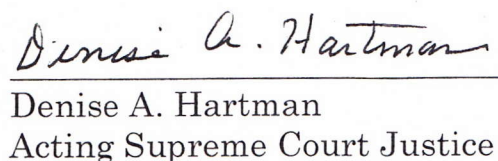 Denise A. Hartman
Denise A. Hartman
Acting Supreme Court Justice